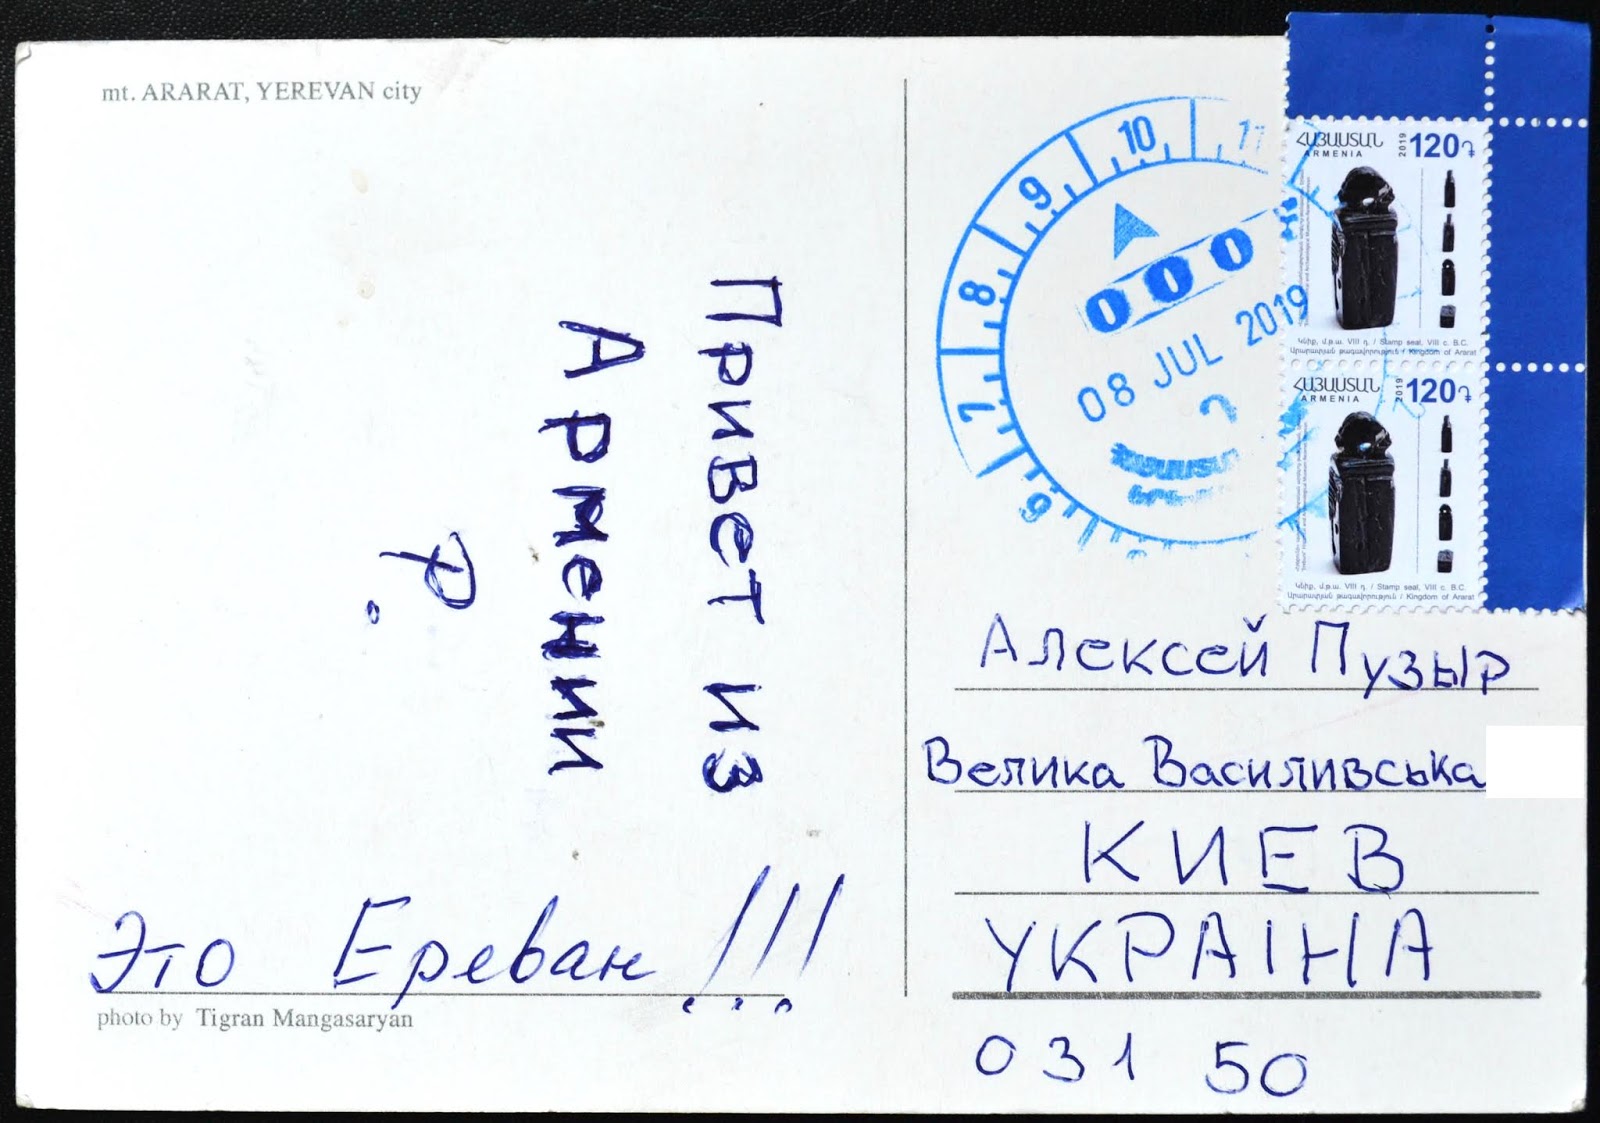 mt. ARARAT, YEREVAN city
Привет из
Армении
Р.
Это Ереван!!!
photo by Tigran Mangasaryan
6 7 8 9 10 11
000
08 JUL 2019
ՀԱՅԱՍՏԱՆ 2019 120֏
ARMENIA
Կնիք, մ.թ.ա. VIII դ. / Stamp seal, VIII c. B.C.
Արարատյան թագավորություն / Kingdom of Ararat
ՀԱՅԱՍՏԱՆ 2019 120֏
ARMENIA
Կնիք, մ.թ.ա. VIII դ. / Stamp seal, VIII c. B.C.
Արարատյան թագավորություն / Kingdom of Ararat
Алексей Пузыр
Велика Василивська
КИЕВ
УКРАІНА
031 50